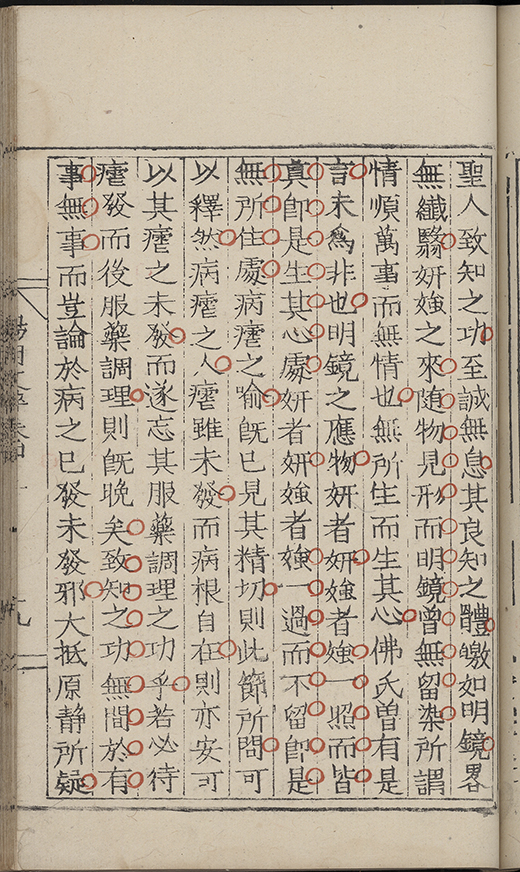 聖人致知之功至誠無息其良知之體皦如明鏡畧
無纖翳妍媸之來随物見形而明鏡曾無留染所謂
情順萬事而無情也無所住而生其心佛氏曾有是
言未爲非也明鏡之應物妍者妍媸者媸一照而皆
真卽是生其心處妍者妍媸者媸一過而不留卽是
無所住處病瘧之喻旣已見其精切則此節所問可
以釋然病瘧之人瘧雖未發而病根自在則亦安可
以其瘧之未發而遂忘其服藥調理之功乎若必待
瘧發而後服藥調理則旣晚矣致知之功無間於有
事無事而豈論於病之已發未發邪大抵原静所疑